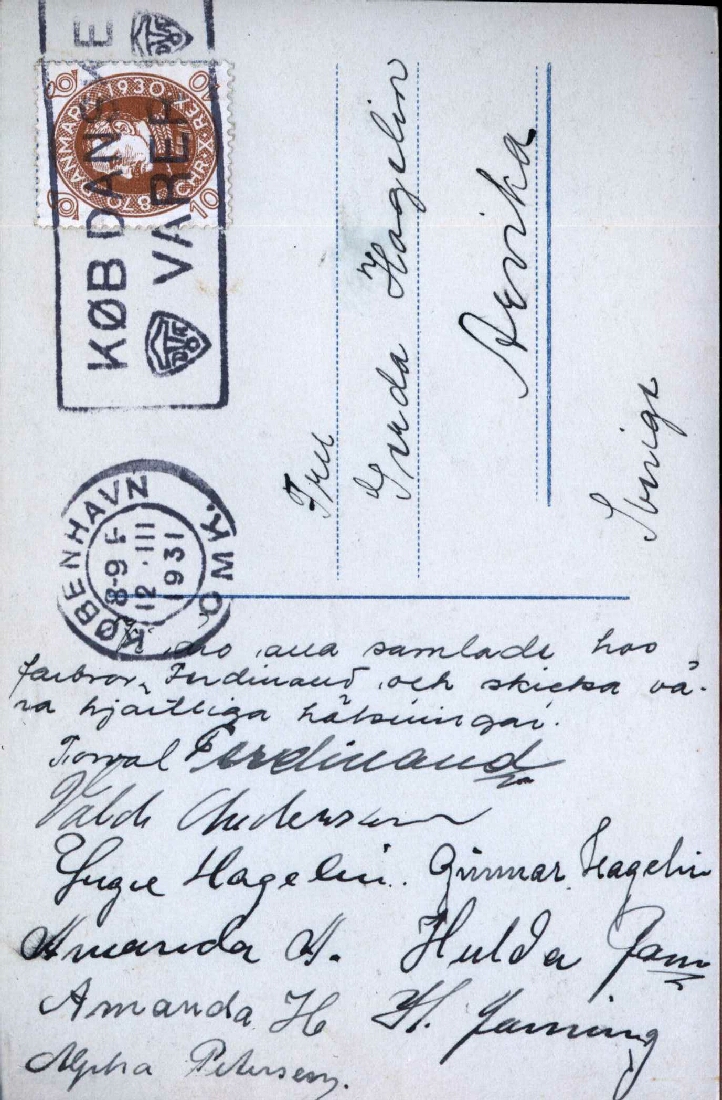 KØB DANSKE
VARER
DANMARK 1930
CHR·X·REX
1870
10
10
KØBENHAVN
8-9 F
12.III
1931
OMK.
Fru
Gerda Hagelin
Arvika
Sverige
äro alla samlade hos
farbror Ferdinand och skicka vå-
ra hjärtliga hälsningar.
Torval Ferdinand
Valdi Andersson
Yngve Hagelin. Gunnar Hagelin
Amanda A. Hulda
Amanda H H. Janning
Alpha Petersen.